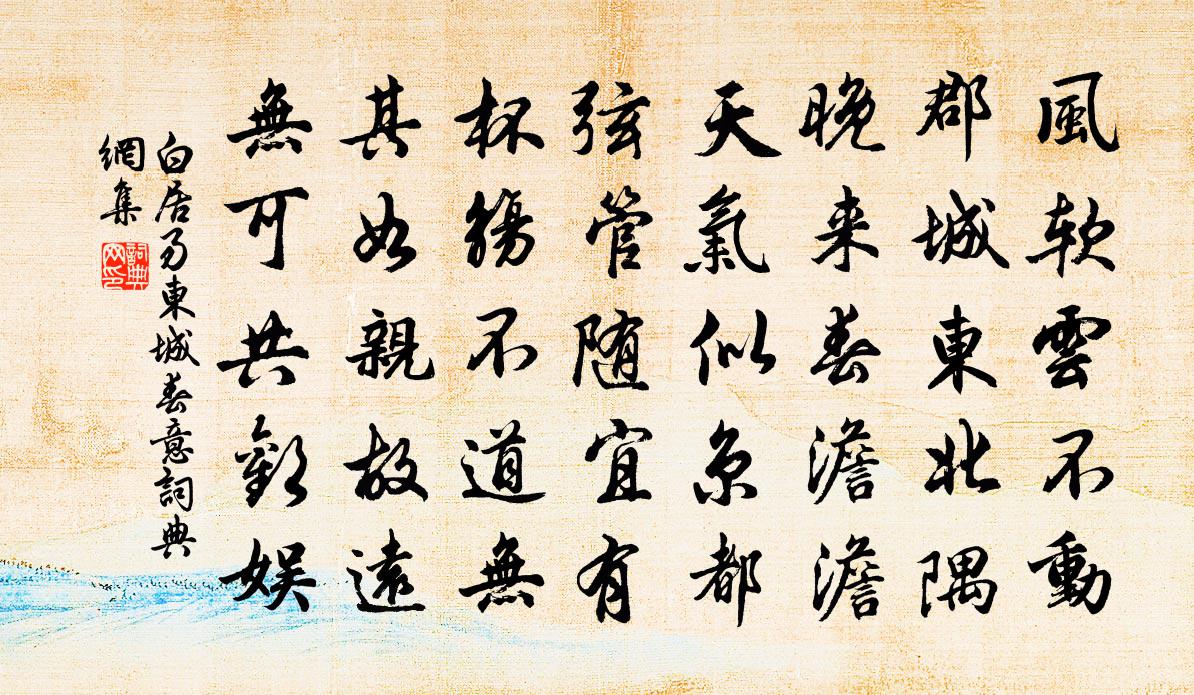 風軟雲不動
郡城東北隅
晚来春澹澹
天氣似京都
弦管随宜有
杯觴不道無
其如親故遠
無可共歡娛
白居易東城春意詞典
網集
詞典
网印